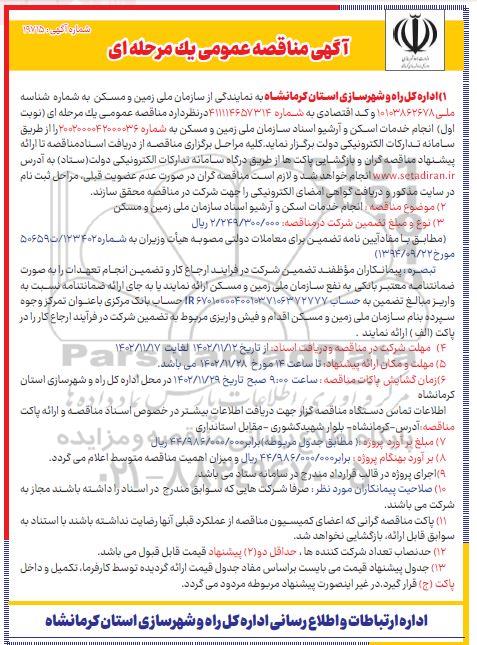 شماره آگهی: ۱۹۷۱۵
آگهی مناقصه عمومی یک مرحله ای
۱) اداره کل راه و شهرسازی استان کرمانشاه به نمایندگی از سازمان ملی زمین و مسکن به شماره شناسه
ملی ۱۰۱۰۳۸۶۲۶۷۸ و کد اقتصادی به شماره ۴۱۱۱۱۴۶۵۷۳۱۴ درنظردارد مناقصه عمومی یک مرحله ای (نوبت
اول) انجام خدمات اسکن و آرشیو اسناد سازمان ملی زمین و مسکن به شماره را از طریق
سامانه تدارکات الکترونیکی دولت برگزار نماید.کلیه مراحل برگزاری مناقصه از دریافت اسنادمناقصه تا ارائه
پیشنهاد مناقصه گران و بازگشایی پاکت ها از طریق درگاه سامانه تدارکات الکترونیکی دولت(ستاد) به آدرس
www.setadiran.ir انجام خواهد شد و لازم است مناقصه گران در صورت عدم عضویت قبلی، مراحل ثبت نام
در سایت مذکور و دریافت گواهی امضای الکترونیکی را جهت شرکت در مناقصه محقق سازند.
۲) موضوع مناقصه : انجام خدمات اسکن و آرشیو اسناد سازمان ملی زمین و مسکن
۳) نوع و مبلغ تضمین شرکت درمناقصه: ۲/۲۴۹/۳۰۰/۰۰۰ ریال
(مطابق با مفادآیین نامه تضمین برای معاملات دولتی مصوبه هیأت وزیران به شماره۱۲۳۴۰۲/ت۵۰۶۵۹
مورخ۱۳۹۴/۰۹/۲۲)
تبصره : پیمانکاران مؤظفند تضمین شرکت در فرآیند ارجاع کار و تضمین انجام تعهدات را به صورت
ضمانتنامه معتبر بانکی به نفع سازمان ملی زمین و مسکن ارائه نمایند یا به جای ارائه ضمانتنامه نسبت به
واریز مبالغ تضمین به حساب حساب بانک مرکزی باعنوان تمرکز وجوه
سپرده بنام سازمان ملی زمین و مسکن اقدام و فیش واریزی مربوط به تضمین شرکت در فرآیند ارجاع کار را در
پاکت (الف ) ارائه نمایند .
۴) مهلت شرکت در مناقصه ودریافت اسناد: از تاریخ ۱۴۰۲/۱۱/۱۲ لغایت ۱۴۰۲/۱۱/۱۷
۵) مهلت و مکان ارائه پیشنهاد: تا ساعت ۱۴ مورخ ۱۴۰۲/۱۱/۲۸ می باشد.
۶)زمان گشایش پاکات مناقصه : ساعت ۹:۰۰ صبح تاریخ ۱۴۰۲/۱۱/۲۹ در محل اداره کل راه و شهرسازی استان
کرمانشاه
اطلاعات تماس دستگاه مناقصه گزار جهت دریافت اطلاعات بیشتر در خصوص اسناد مناقصه و ارائه پاکت
مناقصه:آدرس-کرمانشاه- بلوار شهیدکشوری -مقابل استانداری
۷) مبلغ برآورد پروژه :( مطابق جدول مربوطه)برابر۴۴/۹۸۶/۰۰۰/۰۰۰ ریال
۸) بر آورد بهنگام پروژه : برابر۴۴/۹۸۶/۰۰۰/۰۰۰ ریال و میزان اهمیت مناقصه متوسط اعلام می گردد.
۹)اجرای پروژه در قالب قرارداد مندرج در سامانه ستاد می باشد.
۱۰) صلاحیت پیمانکاران مورد نظر : صرفا شرکت هایی که سوابق مندرج در اسناد را داشته باشند مجاز به
شرکت می باشند.
۱۱) پاکت مناقصه گرانی که اعضای کمیسیون مناقصه از عملکرد قبلی آنها رضایت نداشته باشند با استناد به
سوابق قابل ارائه، بازگشایی نخواهد شد.
۱۲) حدنصاب تعداد شرکت کننده ها ، حداقل دو(۲) پیشنهاد قیمت قابل قبول می باشد.
۱۳) جدول پیشنهاد قیمت می بایست براساس مفاد جدول قیمت ارائه گردیده توسط کارفرما، تکمیل و داخل
پاکت (ج) قرار گیرد.در غیر اینصورت پیشنهاد مربوطه مردود می گردد.
اداره ارتباطات و اطلاع رسانی اداره کل راه و شهرسازی استان کرمانشاه